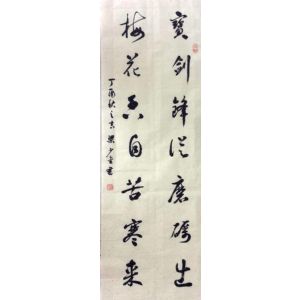 寶劍鋒從磨礪出
梅花香自苦寒來
丁酉秋之